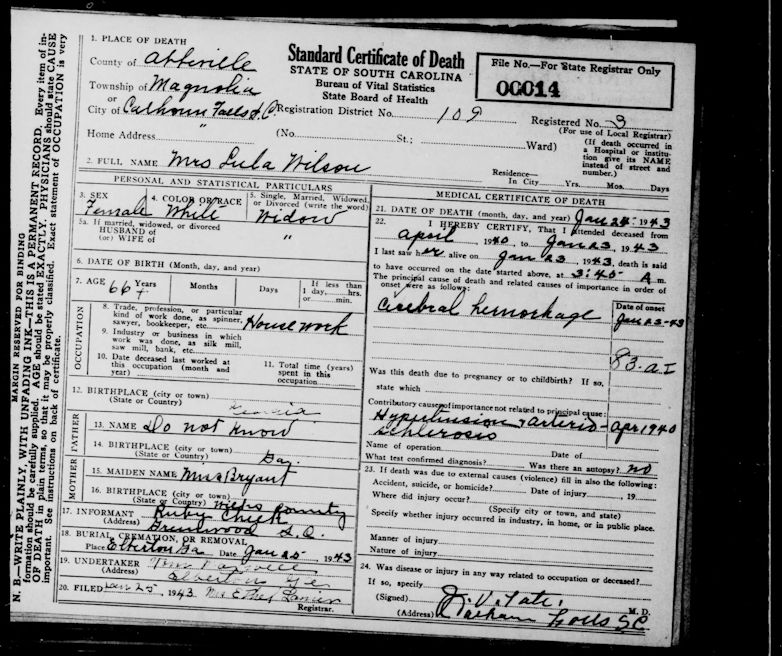 N. B.—WRITE PLAINLY, WITH UNFADING INK—THIS IS A PERMANENT RECORD. Every item of in-
formation should be carefully supplied. AGE should be stated EXACTLY. PHYSICIANS should state CAUSE
OF DEATH in plain terms, so that it may be properly classified. Exact statement of OCCUPATION is very
important. See instructions on back of certificate.
MARGIN RESERVED FOR BINDING
1. PLACE OF DEATH
County of Abbiville
Township of Magnolia
or
City of Calhoun Falls S.C.
Home Address "
Standard Certificate of Death
STATE OF SOUTH CAROLINA
Bureau of Vital Statistics
State Board of Health
Registration District No. 109
(No. St.; Ward)
File No.—For State Registrar Only
00014
Registered No. 3
(For use of Local Registrar)
(If death occurred in
a Hospital or institu-
tion give its NAME
instead of street and
number.)
2. FULL NAME Mrs Lula Wilson
Residence—
In City Yrs. Mos. Days
PERSONAL AND STATISTICAL PARTICULARS
3. SEX
Female
4. COLOR OR RACE
White
5. Single, Married, Widowed,
or Divorced (write the word)
Widow
5a. If married, widowed, or divorced
HUSBAND of
(or) WIFE of "
6. DATE OF BIRTH (Month, day, and year)
7. AGE 66 Years Months Days
If less than
1 day, hrs.
or min.
OCCUPATION
8. Trade, profession, or particular
kind of work done, as spinner,
sawyer, bookkeeper, etc. House work
9. Industry or business in which
work was done, as silk mill,
saw mill, bank, etc.
10. Date deceased last worked at
this occupation (month and
year)
11. Total time (years)
spent in this
occupation
12. BIRTHPLACE (city or town)
(State or Country) Georgia
FATHER
13. NAME Do not know
14. BIRTHPLACE (city or town)
(State or Country) Ga.
MOTHER
15. MAIDEN NAME Miss Bryant
16. BIRTHPLACE (city or town)
(State or Country) County
17. INFORMANT Ruby Cheek
(Address) Greenwood S.C.
18. BURIAL, CREMATION, OR REMOVAL
Place Elberton Ga Date Jan 25 1943
19. UNDERTAKER
(Address) Elberton Ga
20. FILED Jan 25, 1943 Mrs Ethel
Registrar.
MEDICAL CERTIFICATE OF DEATH
21. DATE OF DEATH (month, day, and year) Jan 24 1943
22. I HEREBY CERTIFY, That I attended deceased from
April, 1940, to Jan 23, 1943
I last saw her alive on Jan 23, 1943, death is said
to have occurred on the date stated above, at 3:45 A m.
The principal cause of death and related causes of importance in order of
onset were as follows:
Date of onset
Cerebral hemorrhage Jan 23-43
83.a I
Was this death due to pregnancy or to childbirth? If so,
state which
Contributory causes of importance not related to principal cause:
Hypertension & arterio- Apr 1940
sclerosis
Name of operation Date of
What test confirmed diagnosis? Was there an autopsy? no
23. If death was due to external causes (violence) fill in also the following:
Accident, suicide, or homicide? Date of injury , 19
Where did injury occur?
(Specify city or town, and state)
Specify whether injury occurred in industry, in home, or in public place.
Manner of injury
Nature of injury
24. Was disease or injury in any way related to occupation or deceased?
If so, specify
(Signed) J. V. Tate. M. D.
(Address) Calhoun Falls SC